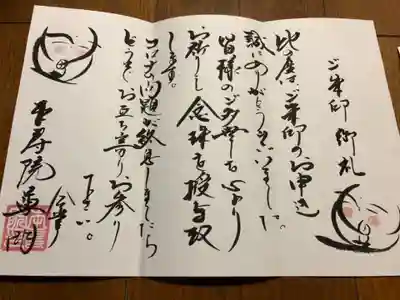 ご朱印 御礼
此度はご朱印のお申込
誠にありがとうございました。
皆様のご多幸を心より
お祈りし念珠を授与致
します。
コロナの問題が終息しましたら
どうぞお立ち寄りお参り
下さい。
合掌
寿院